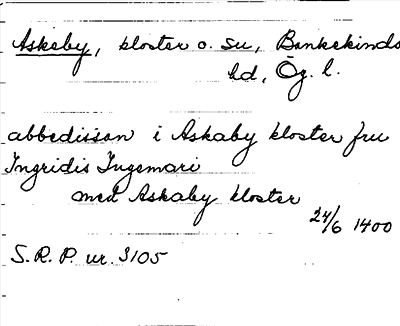 Askaby, kloster o. su, Bankekinds
hd, Ög. l.
abbedissan i Askaby kloster fru
Ingridis Ingemari
med Askaby kloster
24/6 1400
S. R. P. nr. 3105